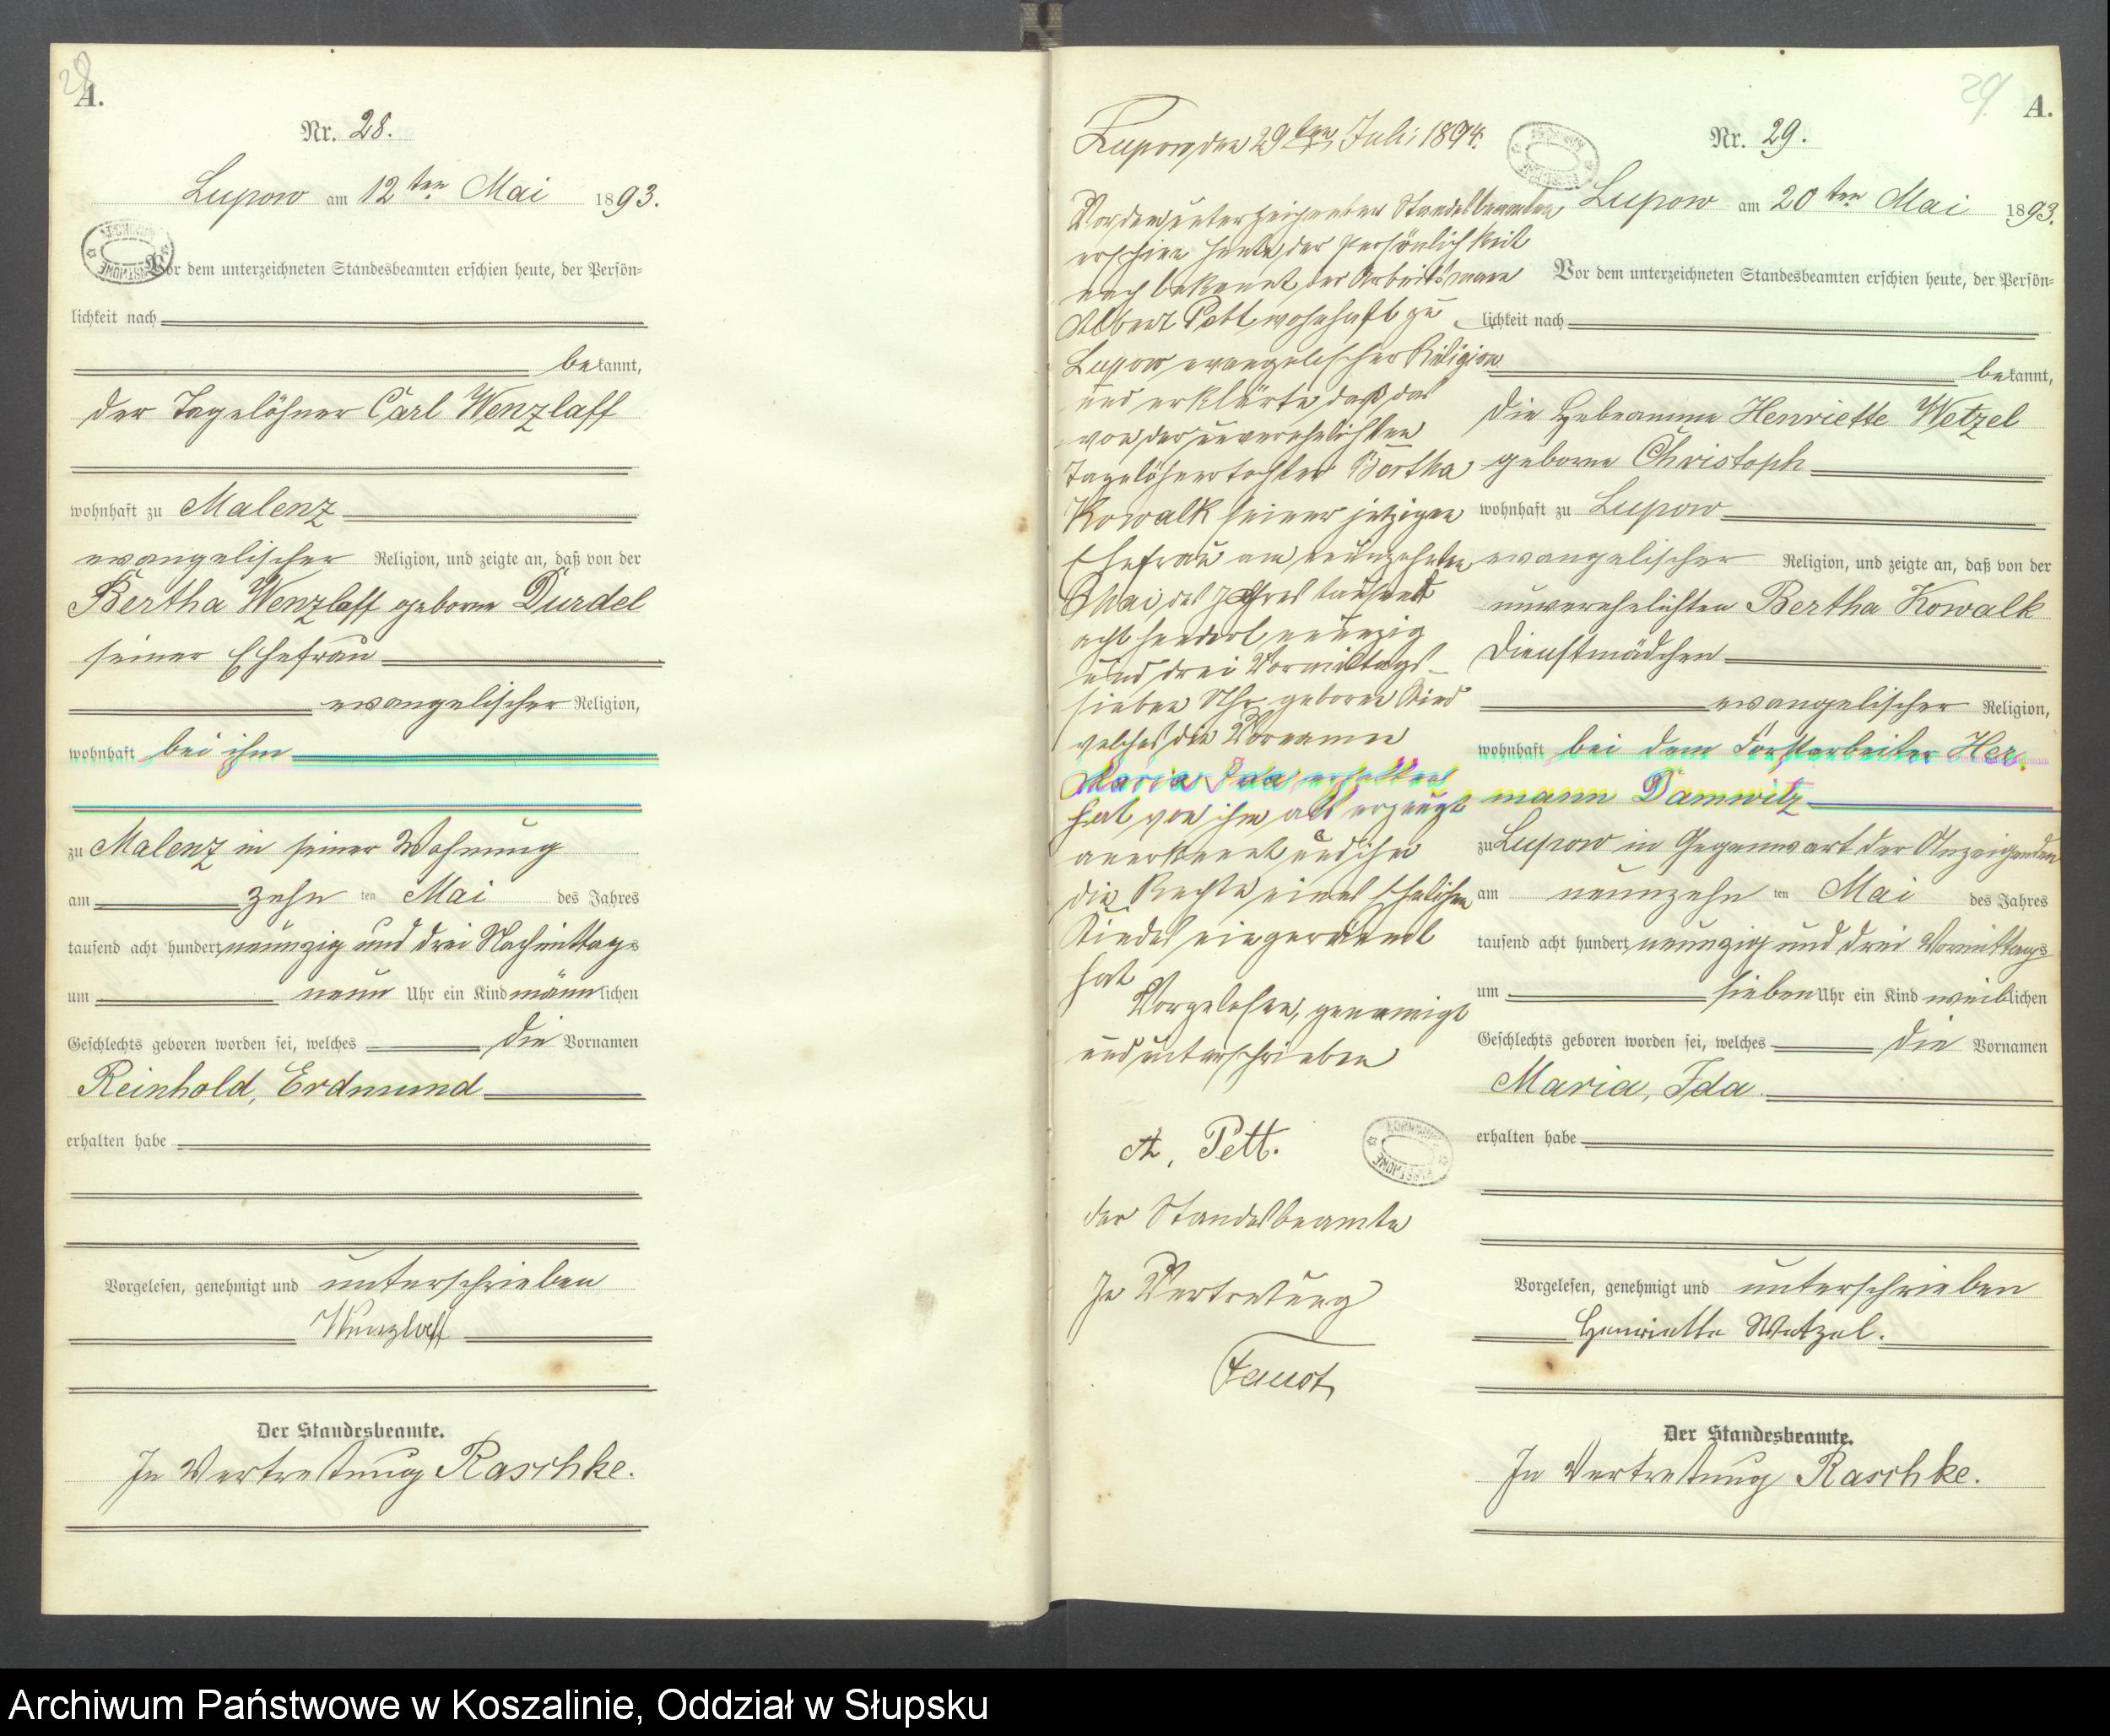 28
A.
Nr. 28.
Lupow am 12ten Mai 1893.
Vor dem unterzeichneten Standesbeamten erschien heute, der Persön=
lichkeit nach
bekannt,
der Tagelöhner Carl Wenzlaff
wohnhaft zu Malenz
evangelischer Religion, und zeigte an, daß von der
Bertha Wenzlaff geborne Durdel
seiner Ehefrau
evangelischer Religion,
wohnhaft bei ihm
zu Malenz in seiner Wohnung
am zehn ten Mai des Jahres
tausend acht hundert neunzig und drei Nachmittags
um neun Uhr ein Kind männlichen
Geschlechts geboren worden sei, welches die Vornamen
Reinhold, Erdmund
erhalten habe
Vorgelesen, genehmigt und unterschrieben
Wenzlaff
Der Standesbeamte.
In Vertretung Raschke.
Lupow, den 29ten Juli 1894.
Vor dem unterzeichneten Standesbeamten
erschien heute, der Persönlichkeit
nach bekannt, der Arbeitsmann
Albert Pett, wohnhaft zu
Lupow evangelischer Religion
und erklärte, daß das
von der unverehelichten
Tagelöhnertochter Bertha
Kowalk seiner jetzigen
Ehefrau am neunzehnten
Mai des Jahres tausend
acht hundert neunzig
und drei Vormittags
sieben Uhr geborne Kind
welches die Vornamen
Maria Ida erhalten
hat von ihm als erzeugt
anerkannt und ihm
die Rechte eines ehelichen
Kindes eingeräumt
hat
Vorgelesen, genemigt
und unterschrieben
A. Pett.
der Standesbeamte
In Vertretung
Faust
29.
A.
Nr. 29.
Lupow am 20ten Mai 1893.
Vor dem unterzeichneten Standesbeamten erschien heute, der Persön=
lichkeit nach
bekannt,
die Hebeamme Henriette Wetzel
geborne Christoph
wohnhaft zu Lupow
evangelischer Religion, und zeigte an, daß von der
unverehelichten Bertha Kowalk
Dienstmädchen
evangelischer Religion,
wohnhaft bei dem Forstarbeiter Her-
mann Damwitz
zu Lupow in Gegenwart der Anzeigenden
am neunzehn ten Mai des Jahres
tausend acht hundert neunzig und drei Vormittags
um sieben Uhr ein Kind weiblichen
Geschlechts geboren worden sei, welches die Vornamen
Maria, Ida
erhalten habe
Vorgelesen, genehmigt und unterschrieben
Henriette Wetzel.
Der Standesbeamte.
In Vertretung Raschke.
Archiwum Państwowe w Koszalinie, Oddział w Słupsku